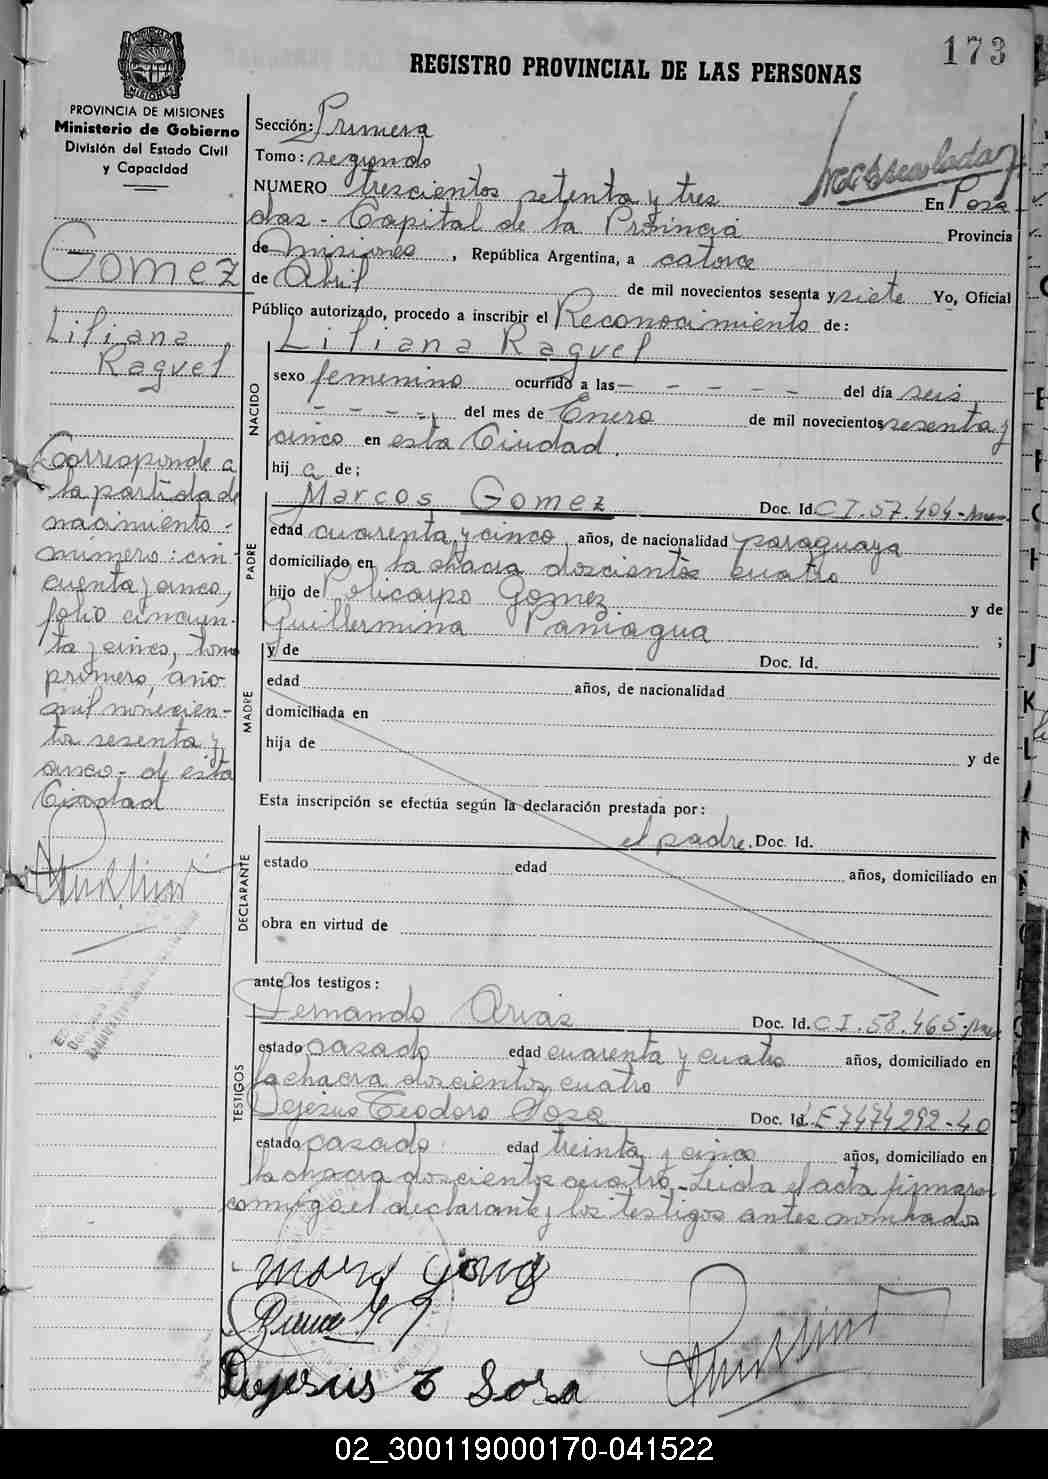 173
REGISTRO PROVINCIAL DE LAS PERSONAS
MISIONES
PROVINCIA DE MISIONES
Ministerio de Gobierno
División del Estado Civil
y Capacidad
Gomez
Liliana
Raquel
Corresponde a
la partida de
nacimiento -
número: cin
cuenta y cinco,
folio cincuen-
ta y cinco, tomo
primero, año
mil novecien-
to sesenta y
cinco - de esta
Ciudad
Sección: Primera
Tomo: segundo
NUMERO trescientos setenta y tres En Posa
das - Capital de la Provincia Provincia
de Misiones, República Argentina, a catorce
de Abril de mil novecientos sesenta y siete Yo, Oficial
Público autorizado, procedo a inscribir el Reconocimiento de:
Liliana Raquel
NACIDO
sexo femenino ocurrido a las - - - - - del día seis
- - - - -, del mes de Enero de mil novecientos sesenta y
cinco en esta Ciudad.
hij a de;
PADRE
Marcos Gomez Doc. Id. C I. 57.404-
edad cuarenta y cinco años, de nacionalidad paraguaya
domiciliado en la chacra doscientos cuatro
hijo de Policarpo Gomez y de
Guillermina Paniagua ;
MADRE
y de Doc. Id.
edad años, de nacionalidad
domiciliada en
hija de y de
Esta inscripción se efectúa según la declaración prestada por:
DECLARANTE
el padre. Doc. Id.
estado edad años, domiciliado en
obra en virtud de
ante los testigos:
TESTIGOS
Fernando Arias Doc. Id. C I. 58.465-
estado casado edad cuarenta y cuatro años, domiciliado en
la chacra doscientos cuatro
Dejesus Teodoro Sosa Doc. Id. L E 7474292-40
estado casado edad treinta y cinco años, domiciliado en
la chacra doscientos cuatro - Leida el acta firmaron
conmigo el declarante y los testigos antes nombrados
Dejesus T Sosa
02_300119000170-041522